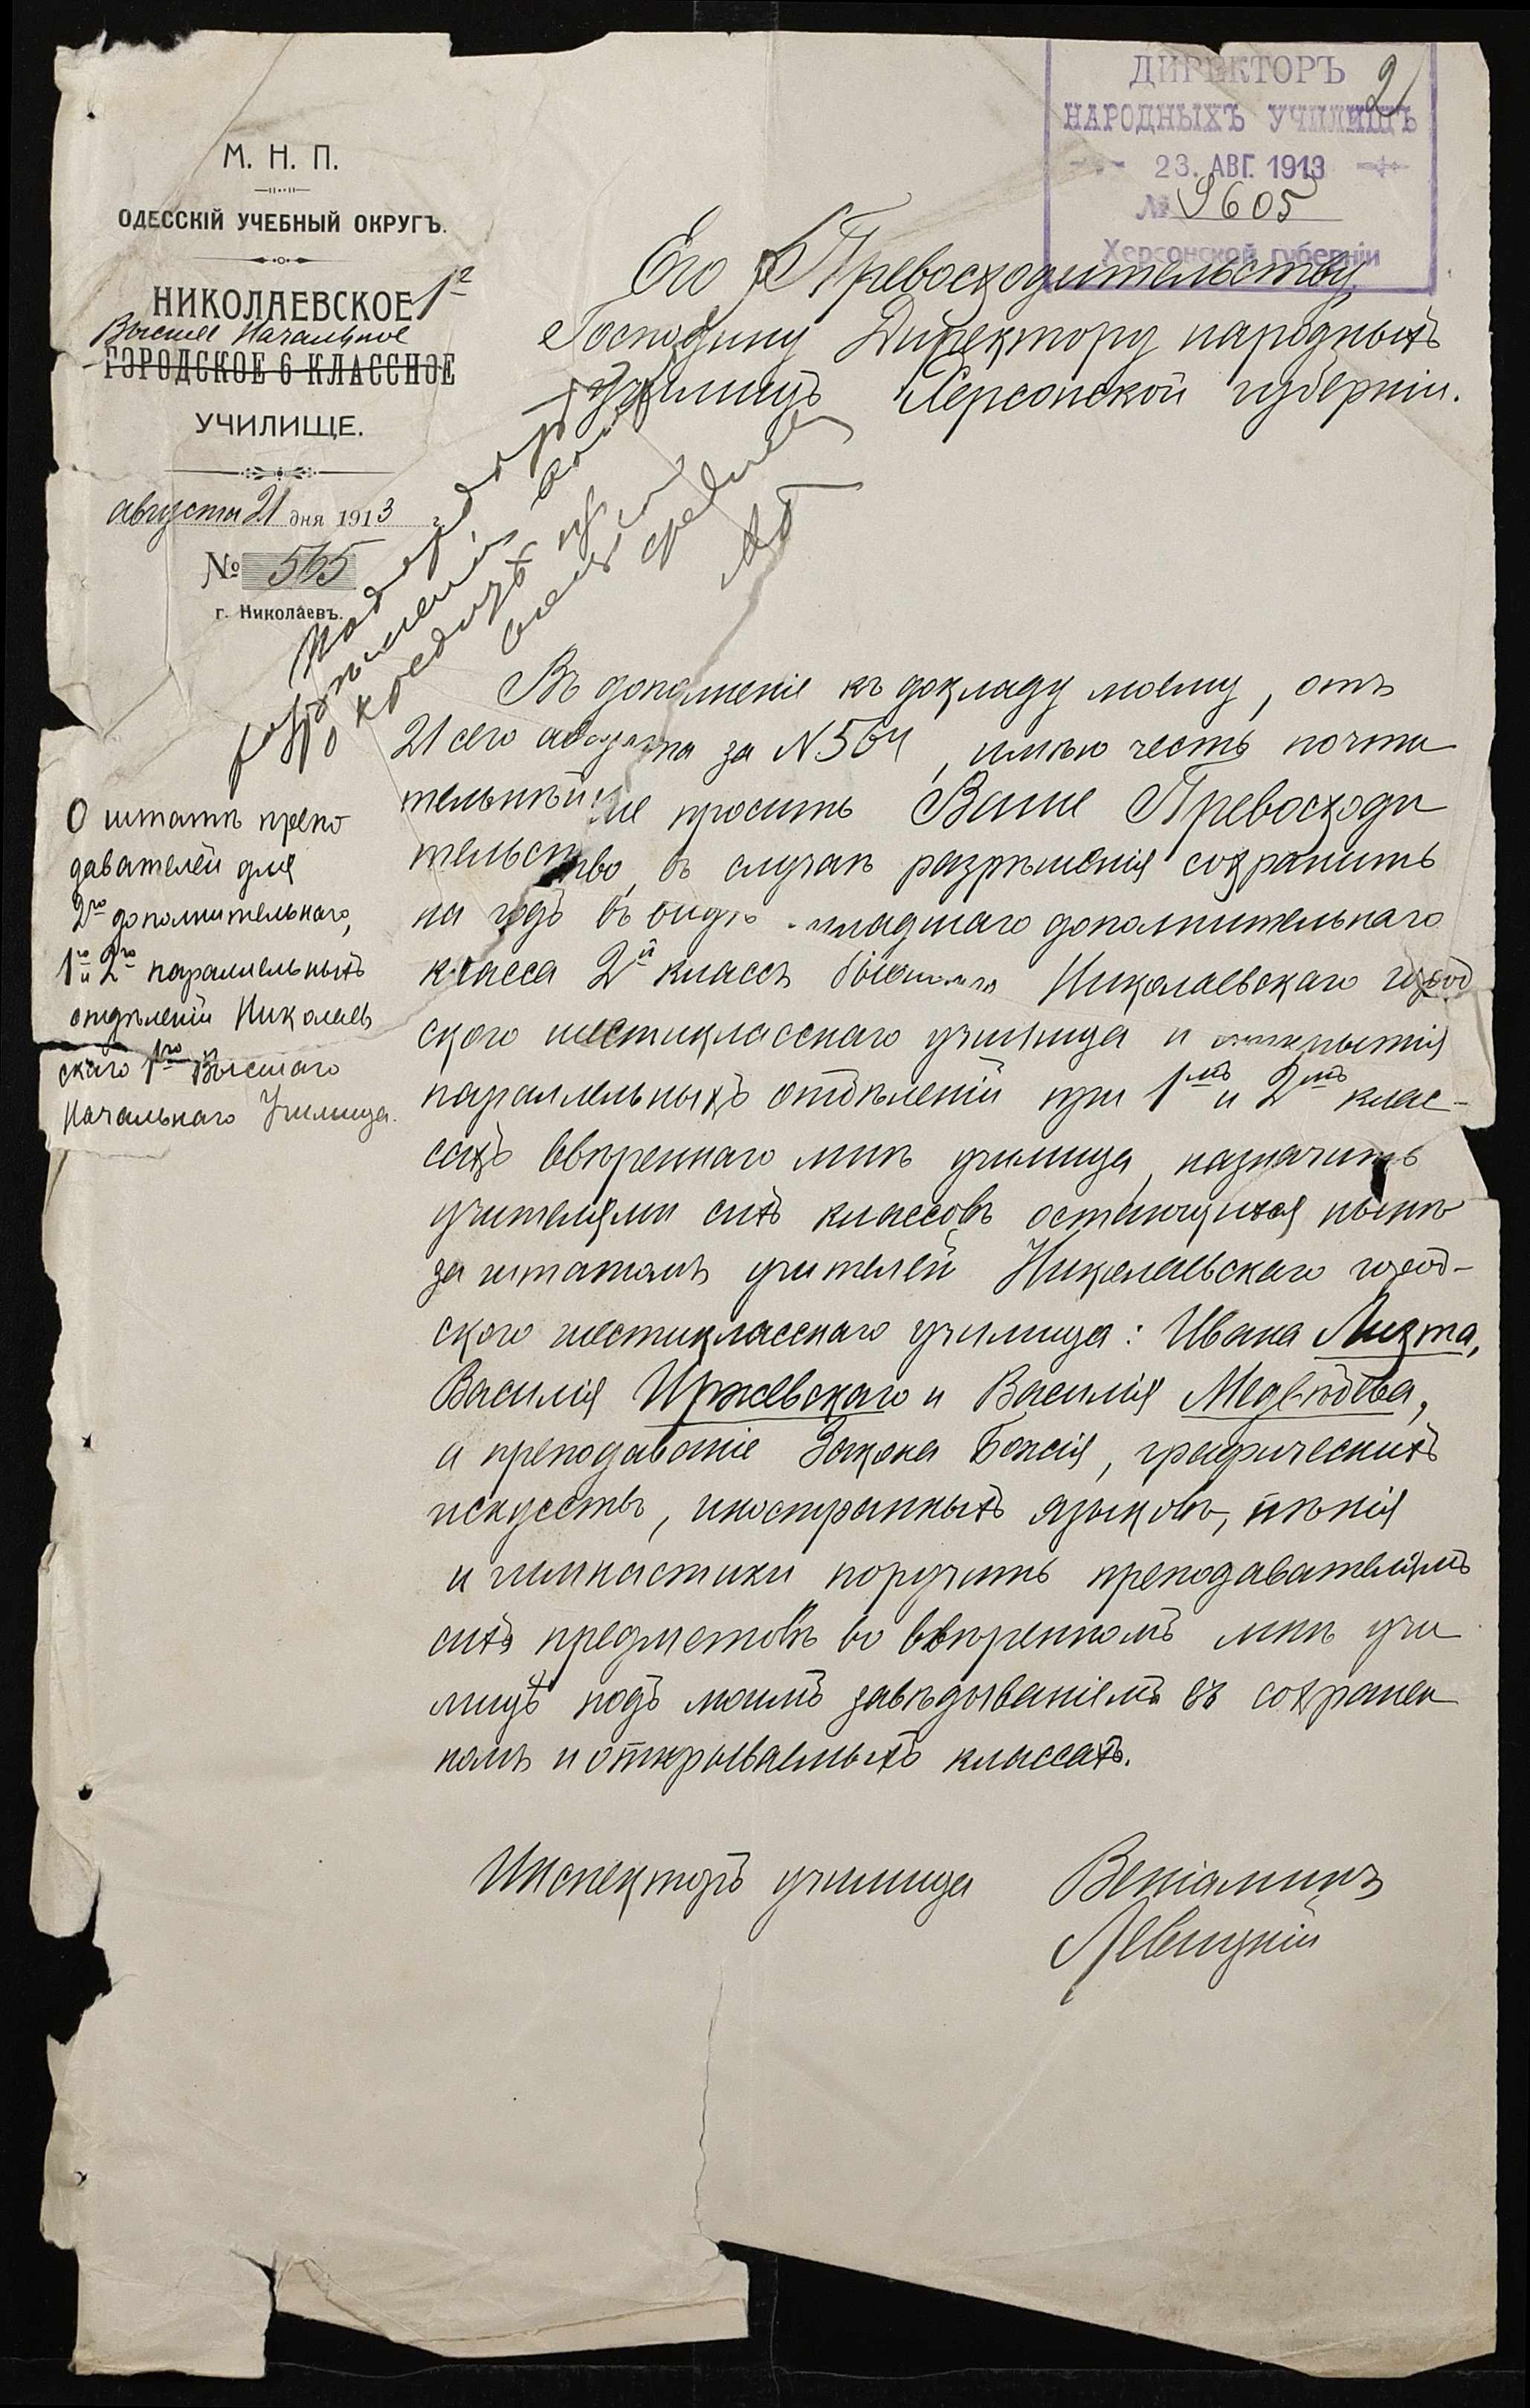 ДИРЕКТОРЪ
НАРОДНЫХЪ УЧИЛИЩЪ
23. АВГ. 1913
№ 9605
Херсонской губерніи
2
М. Н. П.
ОДЕССКІЙ УЧЕБНЫЙ ОКРУГЪ.
НИКОЛАЕВСКОЕ 1е
Высшее Начальное
ГОРОДСКОЕ 6 КЛАССНОЕ
УЧИЛИЩЕ.
августа 21 дня 1913 г.
№ 565
г. Николаевъ.
Его Превосходительству
Господину Директору народныхъ
училищъ Херсонской губерніи.
О штатѣ препо
давателей для
2го дополнительнаго,
1го и 2го параллельныхъ
отдѣленій Николаев
скаго 1го Высшаго
Начальнаго Училища.
Въ дополненіе къ докладу моему, отъ
21 сего августа за N 564, имѣю честь почти
тельнѣйше просить Ваше Превосходи
тельство, въ случаѣ разрѣшенія сохранить
на годъ въ видѣ младшаго дополнительнаго
класса 2й классъ бывшаго Николаевскаго город
ского шестикласснаго училища и открытія
параллельныхъ отдѣленій при 1мъ и 2мъ клас-
сахъ ввѣреннаго мнѣ училища, назначить
учителями сихъ классовъ остающихся нынѣ
за штатомъ учителей Николаевскаго город-
ского шестикласснаго училища: Ивана Лихта,
Василія Иржевскаго и Василія Медвѣдева,
а преподаваніе Закона Божія, графическихъ
искусствъ, иностранныхъ языковъ, пѣнія
и гимнастики поручить преподавателямъ
сихъ предметовъ во ввѣренномъ мнѣ учи
лищѣ подъ моимъ завѣдываніемъ въ сохранен
номъ и открываемыхъ классахъ.
Инспекторъ училища Веніаминъ
Левицкій